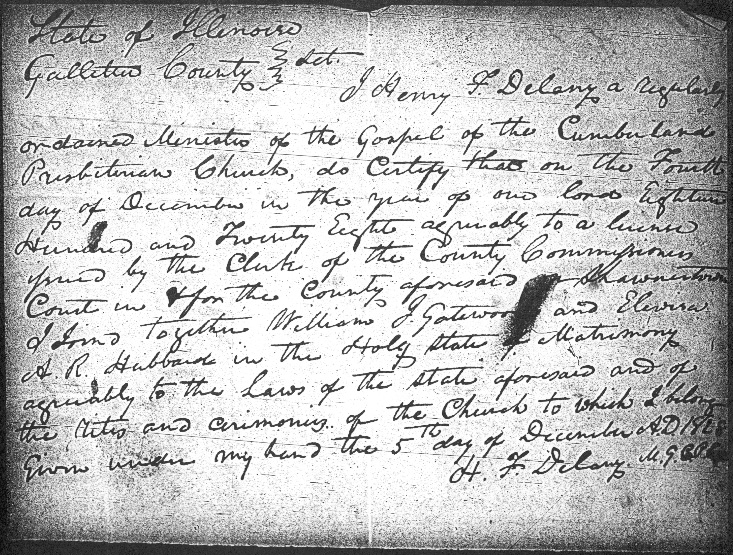 State of Illenoise
Gallitin County } Sct.
I Henry F. Delany a regularly
ordained Minister of the Gospel of the Cumberland
Presbiterian Church, do Certify that on the Fourth
day of December in the year of our lord Eighteen
Hundred and Twenty Eight agreeably to a license
issued by the Clerk of the County Commissioners
Court in & for the County aforesaid Shawneetown
I Joined together William J. Gatewood and Elevira
A R. Hubbard in the Holy state of Matrimony
agreeably to the Laws of the state aforesaid and of
the rites and ceremonies of the Church to which I belong
Given under my hand the 5th day of December A.D 1828
H. F Delany M.G.